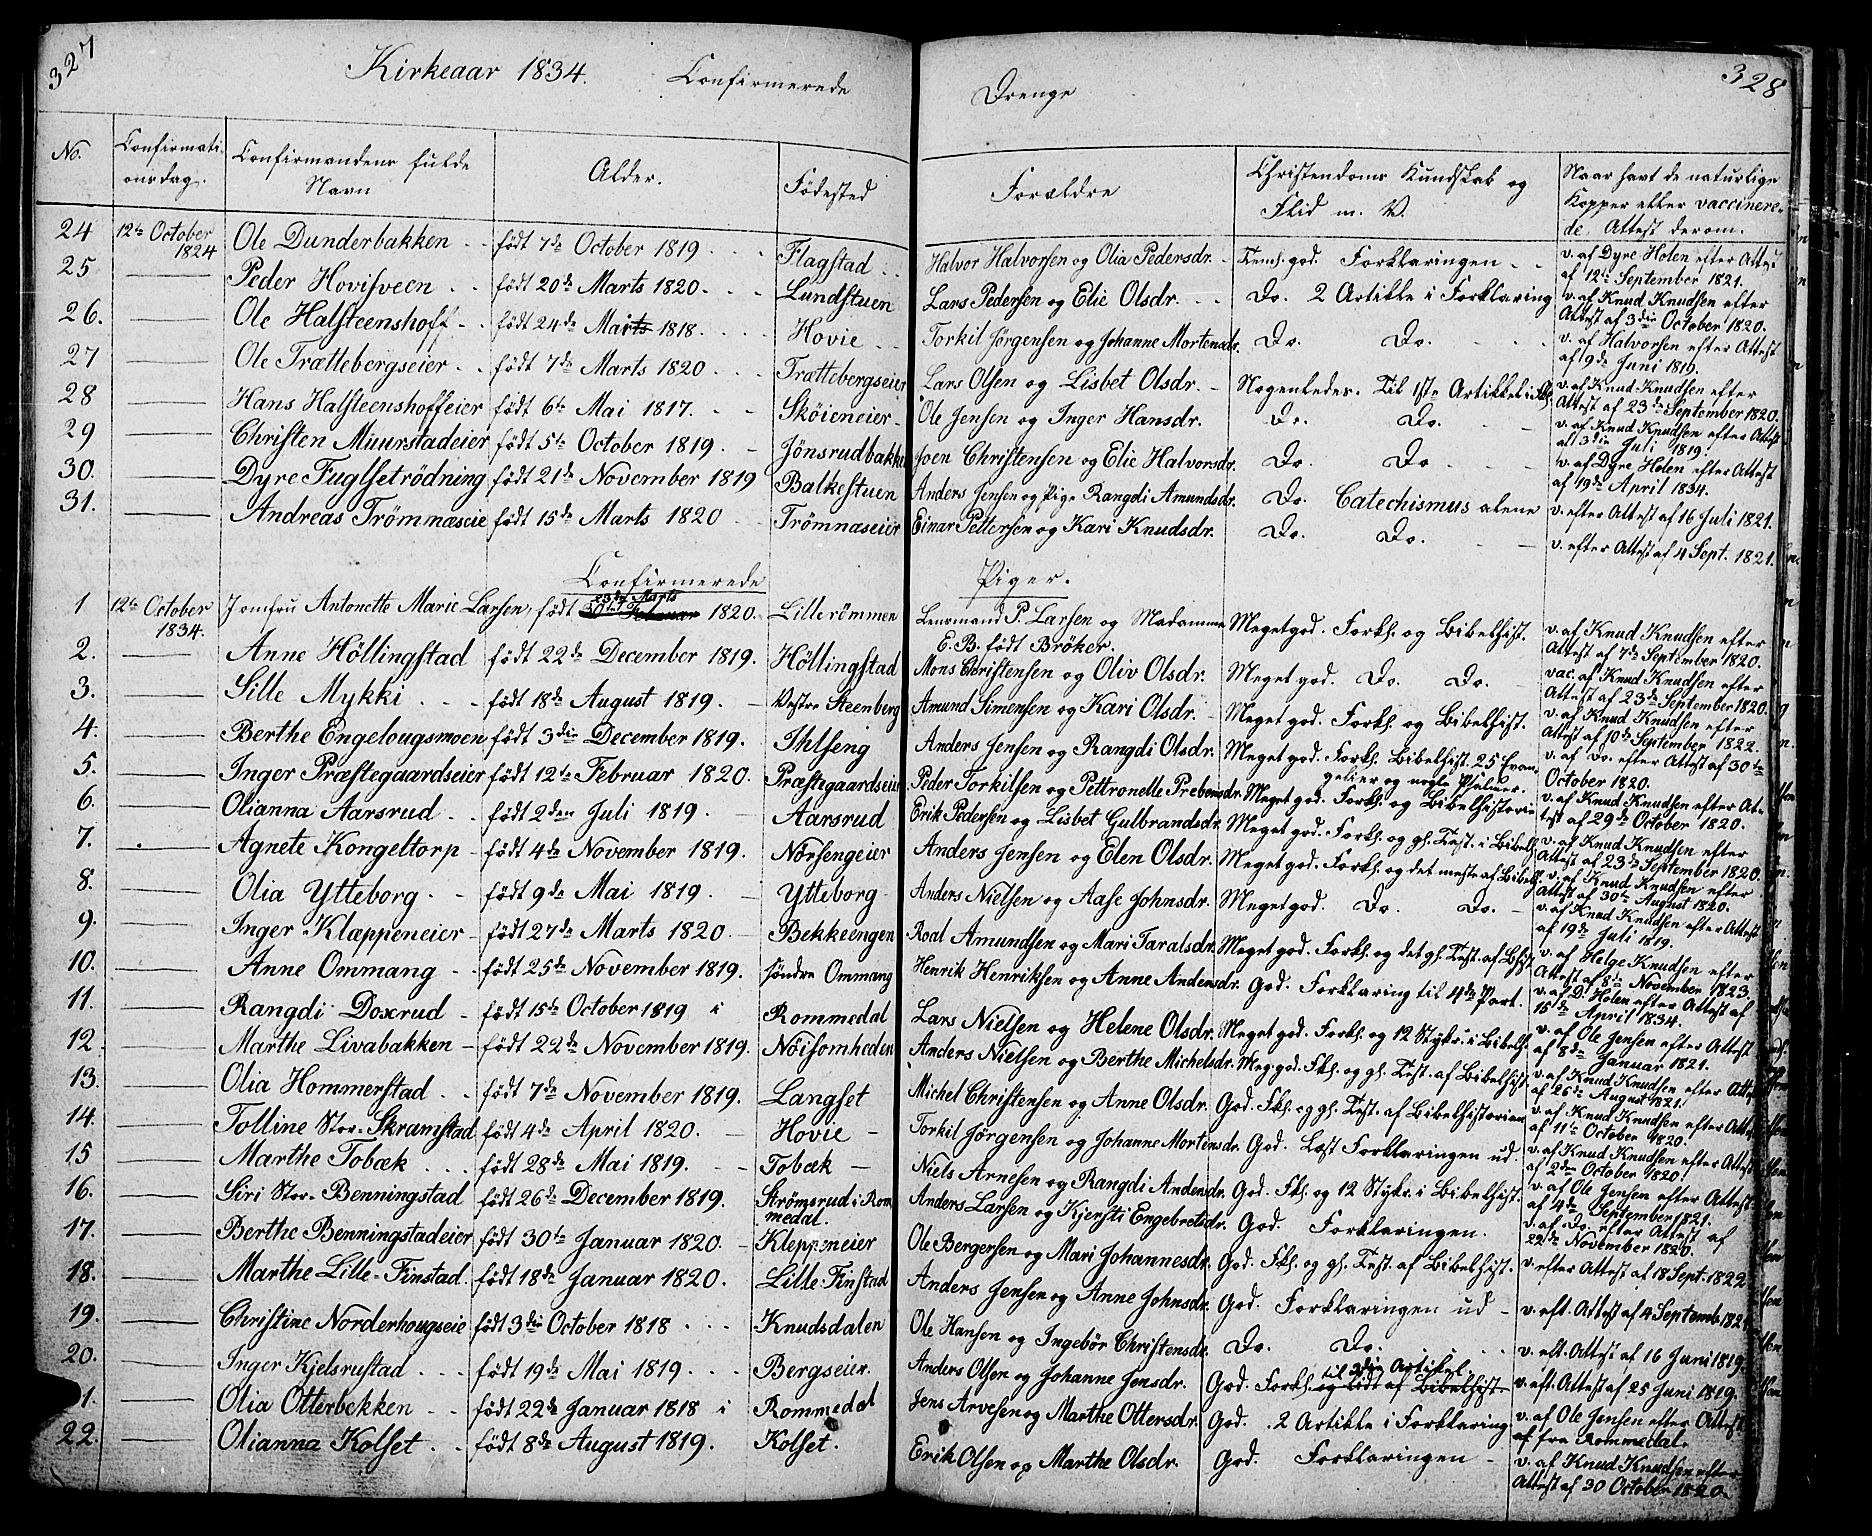 327
Kirkeaar 1834. Confirmerede
No. Confirmationsdag. Confirmandens fulde Navn Alder. Fødested
24 12te October 1824 Ole Dunderbakken født 7de October 1819 Flagstad
25 Peder Hovisveen født 20de Marts 1820. Lundstuen
26. Ole Halsteenshoff født 24de Mai 1818. Hovie
27 Ole Trættebergseier født 7de Marts 1820 Trættebergseier
28 Hans Halsteenshoffeier født 6te Mai 1817. Skøieneier
29 Christen Muurstadeier født 5te October 1819. Jønsrudbakken
30. Dyre Fuglsetrødning født 21de November 1819 Balkestuen
31. Andreas Trømnæseie født 15de Marts 1820 Trømnæseier
Confirmerede
1 12te October 1834. Jomfru Antonette Marie Larsen, født 23de Marts 1820. Lillerømmen
2. Anne Høllingstad født 22de December 1819. Høllingstad
3. Sille Mykki født 18de August 1819. Vestre Steenberg
4. Berthe Engelougsmoen født 3die December 1819. Ihlseng
5. Inger Præstegaardseier født 12te Februar 1820. Præstegaardseier
6. Olianna Aarsrud født 2den Juli 1819. Aarsrud
7. Agnete Kongeltorp født 4de November 1819. Nørsengeier
8. Olia Ytteborg født 9de Mai 1819. Ytteborg
9. Inger Klæppeneier født 27de Marts 1820. Bekkeengen
10. Anne Ommang født 25de November 1819. søndre Ommang
11. Rangdi Doxrud født 15de October 1819 i Rommedal
12. Marthe Livabakken født 22de November 1819. Nøisomheden
13. Olia Hommerstad født 7de November 1819. Langset
14. Tolline Stor-Skramstad født 4de April 1820. Hovie
15 Marthe Tobæk født 28de Mai 1819. Tobæk
16. Siri Stor-Benningstad født 26de December 1819. Strømsrud i Rommedal.
17. Berthe Benningstadeier født 30te Januar 1820. Kleppeneier
18. Marthe Lille-Finstad født 18de Januar 1820. Lille Finstad
19. Christine Norderhougseie født 3die October 1818 Knudsdalen
20. Inger Kjelsrustad født 19de Mai 1819. Bergseier.
1. Olia Otterbekken født 22de Januar 1818 i Rommedal
22. Olianna Kolset født 8de August 1819. Kolset.
328
Drenge
Forældre Christendoms Kundskab og Flid m. V. Naar havt de naturlige Kopper eller vaccinerede. Attest derom.
Halvor Halvorsen og Olia Pedersdr. Temh. god. Forklaringen v. af Dyre Holen efter Attest af 12te September 1821.
Lars Pedersen og Elie Olsdr. Do. 2 Artikle i Forklaring v. af Knud Knudsen efter Attest af 3die October 1820.
Torkil Jørgensen og Johanne Mortensdr. Do. Do. v. af Halvorsen efter Attest af 9de Juni 1819.
Lars Olsen og Lisbet Olsdr. Nogenledes. Til 1ste Artikkel v. af Knud Knudsen efter Attest af 23de September 1820.
Ole Jensen og Inger Hansdr. Do. Do. v. af Knud Knudsen efter Attest af 3die Juli 1819.
Joen Christensen og Elie Halvorsdr. Do. Do v. af Dyre Holen efter Attest af 19de April 1834.
Anders Jensen og Pige Rangdi Amundsdr. Do. Catechismus alene v. efter Attest af 16 Juli 1821.
Einar Pettersen og Kari Knudsdr. Do. Do. v. efter Attest af 4 Sept. 1821.
Piger.
Lensmand P. Larsen og Madamme E. B. født Brøker. Meget god. Forkl. og Bibelhist. v. af Knud Knudsen efter Attest af 7de September 1820.
Mons Christensen og Oliv Olsdr. Meget god. Do. Do. vac. af Knud Knudsen efter Attest af 23de September 1820.
Amund Simensen og Kari Olsdr. Meget god. Forkl. og Bibelhist. v. af Knud Knudsen efter Attest af 10de September 1822.
Anders Jensen og Rangdi Olsdr. Meget god. Forkl. Bibelhist. 25 Evangelier og nogle Psalmer. v. af Do. efter Attest af 30te October 1820.
Peder Torkilsen og Pettronelle Prebensdr. Meget god. Forkl. og Bibelhistorie v. af Knud Knudsen efter Attest af 29de October 1820.
Erik Pedersen og Lisbet Gulbrandsdr. Meget god. Forkl. og gl. Test. i Bibelh. v. af Knud Knudsen efter Attest af 23de September 1820.
Anders Jensen og Elen Olsdr. Meget god. Forkl. og det meste af Bibelh. v. af Knud Knudsen efter Attest af 30te August 1820.
Anders Nielsen og Aase Johnsdr. Meget god. Do. Do. v. af Knud Knudsen efter Attest af 19de Juli 1819.
Roal Amundsen og Mari Taralsdr. Meget god. Forkl. og det gl. Test. af Bhist. v. af Helge Knudsen efter Attest af 8de November 1823.
Henrik Henriksen og Anne Andersdr. God. Forklaring til 4de Part. v. af D. Holen efter Attest af 15de April 1834.
Lars Nielsen og Helene Olsdr. Meget god. Forkl. og 12 Stykr. i Bibelh. v. af Ole Jensen efter Attest af 8de Januar 1821.
Anders Nielsen og Berthe Michelsdr. Meg. god. Fkl. og gl. Test. af Bibelhist v. af Knud Knudsen efter Attest af 26de August 1821.
Michel Christensen og Anne Olsdr. God. Fkl. og gl. Test. af Bibelhistorien v. af Knud Knudsen efter Attest af 11te October 1820.
Torkil Jørgensen og Johanne Mortensdr. God. Læst Forklaringen ud. v. af Knud Knudsen efter Attest af 2den October 1820.
Niels Arnesen og Rangdi Andersdr. God. Fkl. og 12 Stykr. i Bibelhist. v. af Ole Jensen efter Attest af 4de September 1821.
Anders Larsen og Kjersti Engebretsdr. God. Forklaringen. v. af Do. efter Attest af 22de November 1820.
Ole Bergersen og Mari Johannesdr. God. Fkl. og gl. Test. af Bibelhist. v. efter Attest af 18 Sept. 1822
Anders Jensen og Anne Johnsdr. God. Forklaringen ud v. eft. Attest af 4 Septemb. 182
Ole Hansen og Ingebør Christensdr. Do. Do. v. eft. Attest af 16 Juni 1819.
Anders Olsen og Johanne Jensdr. God. Forkl. til 2den Artikel og lidt af Bibelhist. v. eft. Attest af 25 Juni 1819.
Jens Arvesen og Marthe Ottersdr. God. 2 Artikle i Forklaring v. af Ole Jensen efter Attest af fra Rommedal.
Erik Olsen og Marthe Olsdr. God. Forklaringen v. af Knud Knudsen efter Attest af 30 October 1820.